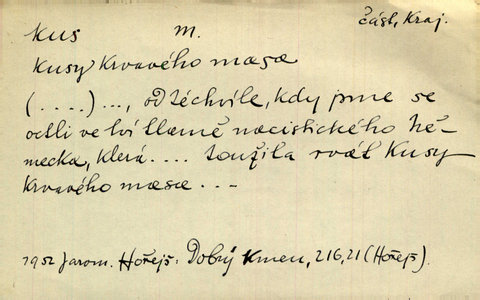 kus m. část, kraj.
kusy krvavého masa
(....)..., od té chvíle, kdy jsme se
octli ve lví tlamě nacistického Ně-
mecka, která.... toužila rvát kusy
krvavého masa...
1952 Jarom. Hořejš: Dobrý kmen, 216,21 (Hořejš).